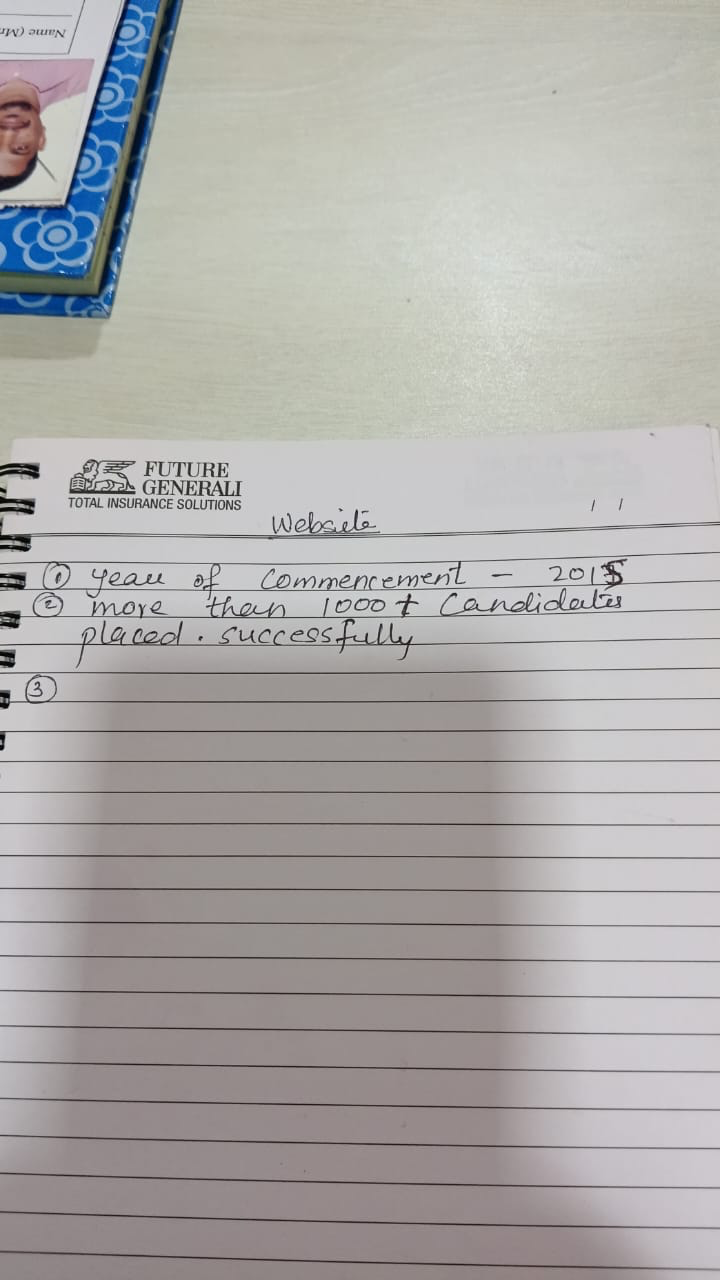 Name (Mr
FUTURE
GENERALI
TOTAL INSURANCE SOLUTIONS
Website
/ /
① year of commencement - 2015
② more than 1000+ Candidates
placed. successfully
③